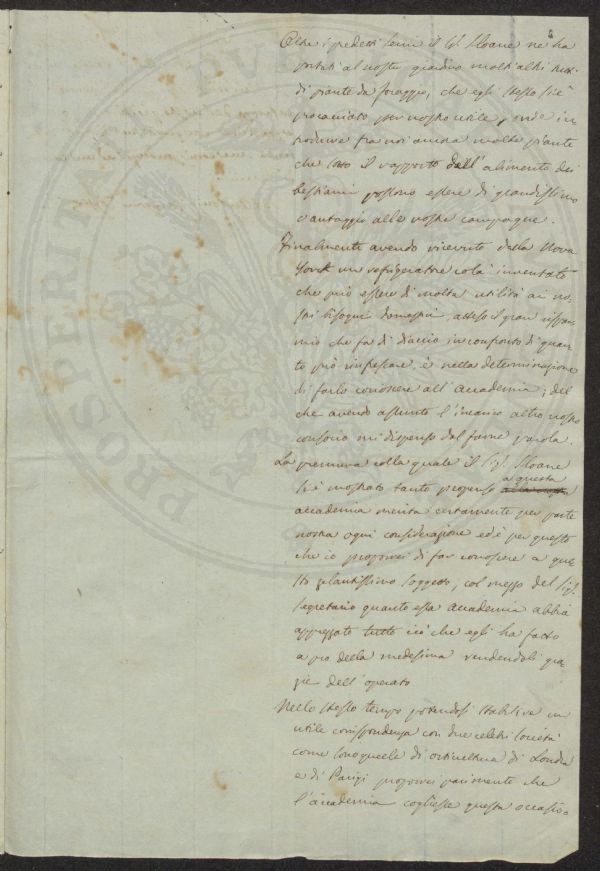 Oltre i predetti semi il Sig. Sloane ne ha
portati al nostro giardino molti altri
di piante da foraggio, che egli stesso si è
procacciato per nostro utile, onde in-
trodurre fra noi ancora molte piante
che sotto il rapporto dell'alimento dei
bestiami possono essere di grandissimo
vantaggio alle nostre campagne.
Finalmente avendo ricevuto dalla Nova
Yorck un refrigeratore colà inventato
che può essere di molta utilità ai no-
stri bisogni domestici, atteso il gran rispar-
mio che fa di diaccio in confronto di quan-
to può rinfrescare, è nella determinazione
di farlo conoscere all'Accademia; del
che avendo assunto l'incarico altro nostro
consocio mi dispenso dal farne parola.
La premura colla quale il Sig. Sloane
si è mostrato tanto propenso a questa
accademia merita certamente per parte
nostra ogni considerazione ed è per questo
che io proporrei di far conoscere a que-
sto zelantissimo soggetto, col mezzo del Sig.
Segretario quanto essa Accademia abbia
apprezzato tutto ciò che egli ha fatto
a pro della medesima rendendoli gra-
zie dell'operato
Nello stesso tempo potendosi stabilire un
utile corrispondenza con due celebri società
come sono quelle di orticultura di Londra
e di Parigi proporrei parimente che
l'accademia cogliesse questa occasio-
PROSPERITA PUBBL